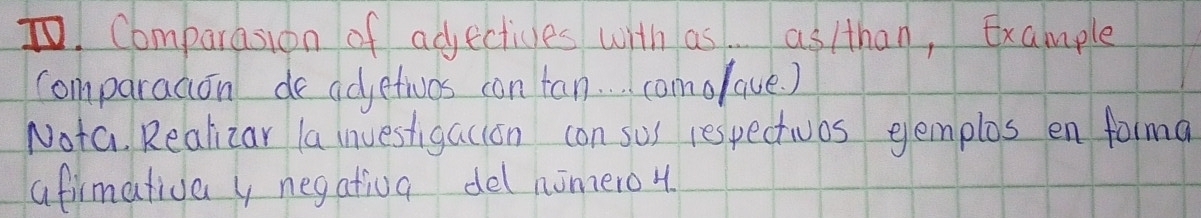 IV. Comparasion of adjectives with as... as/than, Example
Comparación de adjetivos con tan... como/que.)
Nota. Realizar la investigación con sus respectivos ejemplos en forma
afirmativa y negativa del número 4.